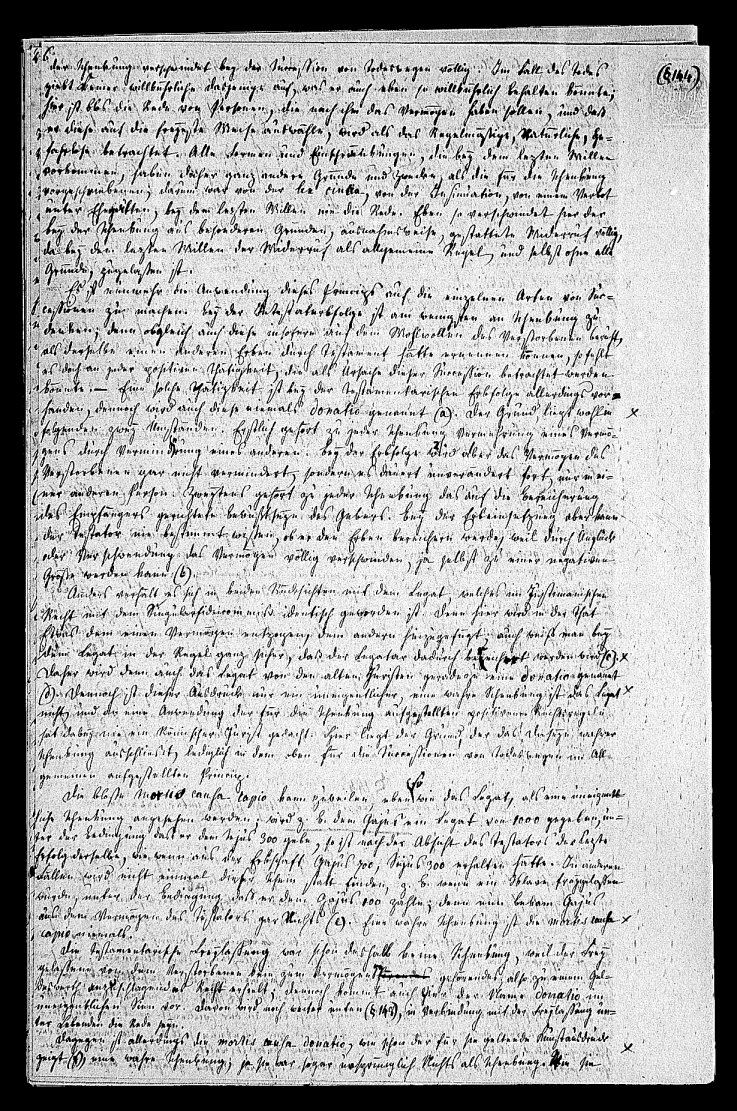 (§ 144)
der Schenkung verschwindet bey der Succession von Todeswegen völlig. Im Fall des Todes
giebt Keiner willkührlich dasjenige auf, was er auch eben so willkührlich behalten könnte;
hier ist blos die Rede von Personen, die nach ihm das Vermögen haben sollen, und daß
er diese auf die freyeste Weise auswähle, wird als das Regelmäßige, Natürliche, Ge-
fahrlose betrachtet. Alle Formen und Einschränkungen, die bey dem letzten Willen
vorkommen, haben daher ganz andere Gründe und Zwecke, als die für die Schenkung
vorgeschriebenen; darum war von der lex cincia, von der Insinuation, von einem Verbot
unter Ehegatten, bey dem letzten Willen nie die Rede. Eben so verschwindet hier der
bey der Schenkung aus besonderen Gründen, ausnahmsweise, gestattete Widerruf völlig,
da bey den letzten Willen der Widerruf als allgemeine Regel, und selbst ohne alle
Gründe, zugelassen ist.
Es ist nunmehr die Anwendung dieses Princips auf die einzelnen Arten von Suc-
cessionen zu machen. Bey der Intestaterbfolge ist am wenigsten an Schenkung zu
denken; denn obgleich auch diese insofern auf dem Wohlwollen des Verstorbenen beruht,
als derselbe einen anderen Erben durch Testament hätte ernennen können, so fehlt
es doch an jeder positiven Thätigkeit, die als Ursache dieser Succession betrachtet werden
könnte. — Eine solche Thätigkeit ist bey der testamentarischen Erbfolge allerdings vor-
handen, dennoch wird auch diese niemals donatio genannt (a). Der Grund liegt wohl in
folgenden zwey Umständen. Erstlich gehört zu jeder Schenkung Vermehrung eines Vermö-
gens durch Verminderung eines anderen. Bey der Erbfolge wird aber das Vermögen des
Verstorbenen gar nicht vermindert, sondern es dauert unverändert fort, nur in ei-
ner anderen Person. Zweytens gehört zu jeder Schenkung das auf die Bereicherung
des Empfängers gerichtete Bewußtseyn des Gebers. Bey der Erbeinsetzung aber kann
der Testator nie bestimmt wissen, ob er den Erben bereichern werde, weil durch Unglück
oder Verschwendung das Vermögen völlig verschwinden, ja selbst zu einer negativen
Größe werden kann (b).
Anders verhält es sich in beiden Rücksichten mit dem Legat, welches im Justinianischen
Recht mit dem Singularfideicommiß identisch geworden ist. Denn hier wird in der That
Etwas dem einen Vermögen entzogen, dem andern hinzugefügt; auch weiß man bey
dem Legat in der Regel ganz sicher, daß der Legatar dadurch bereichert werden wird (c).
Daher wird denn auch das Legat von den alten Juristen geradezu eine donatio genannt
(d). Dennoch ist dieser Ausdruck nur ein uneigentlicher, eine wahre Schenkung ist das Legat
nicht, und an eine Anwendung der für die Schenkung aufgestellten positiven Rechtsregeln
hat dabey nie ein Römischer Jurist gedacht. Hier liegt der Grund, der das Daseyn wahrer
Schenkung ausschließt, lediglich in dem oben für die Successionen von Todeswegen im All-
gemeinen aufgestellten Princip.
Die bloße mortis causa capio kann zuweilen, eben so wie das Legat, als eine uneigent-
liche Schenkung angesehen werden; wird z. B. dem Gajus ein Legat von 1000 gegeben, un-
ter der Bedingung daß er dem Sejus 300 gebe, so ist nach der Absicht des Testators der letzte
Erfolg derselbe, wie wenn aus der Erbschaft Gajus 700, Sejus 300 erhalten hätte. In anderen
Fällen wird nicht einmal dieser Schein statt finden, z. B. wenn ein Sklave freygelassen
wurde, unter der Bedingung daß er dem Gajus 100 zahle; denn nun bekam Gajus
aus dem Vermögen des Testators gar Nichts (e). Eine wahre Schenkung ist die mortis causa
capio niemals.
Die testamentarische Freylassung war schon deshalb keine Schenkung, weil der Frey-
gelassene von dem Verstorbenen kein zum Vermögen gehörendes, also zu einem Gel-
deswerth anzuschlagendes Recht erhielt; dennoch kommt auch hier der Name donatio im
uneigentlichen Sinn vor. Davon wird noch weiter unten (§ 145), in Verbindung mit der Freylassung un-
ter Lebenden die Rede seyn.
Dagegen ist allerdings die mortis causa donatio, wie schon der für sie geltende Kunstausdruck
zeigt (g) eine wahre Schenkung; ja sie war sogar ursprünglich Nichts als Schenkung. Wie sie